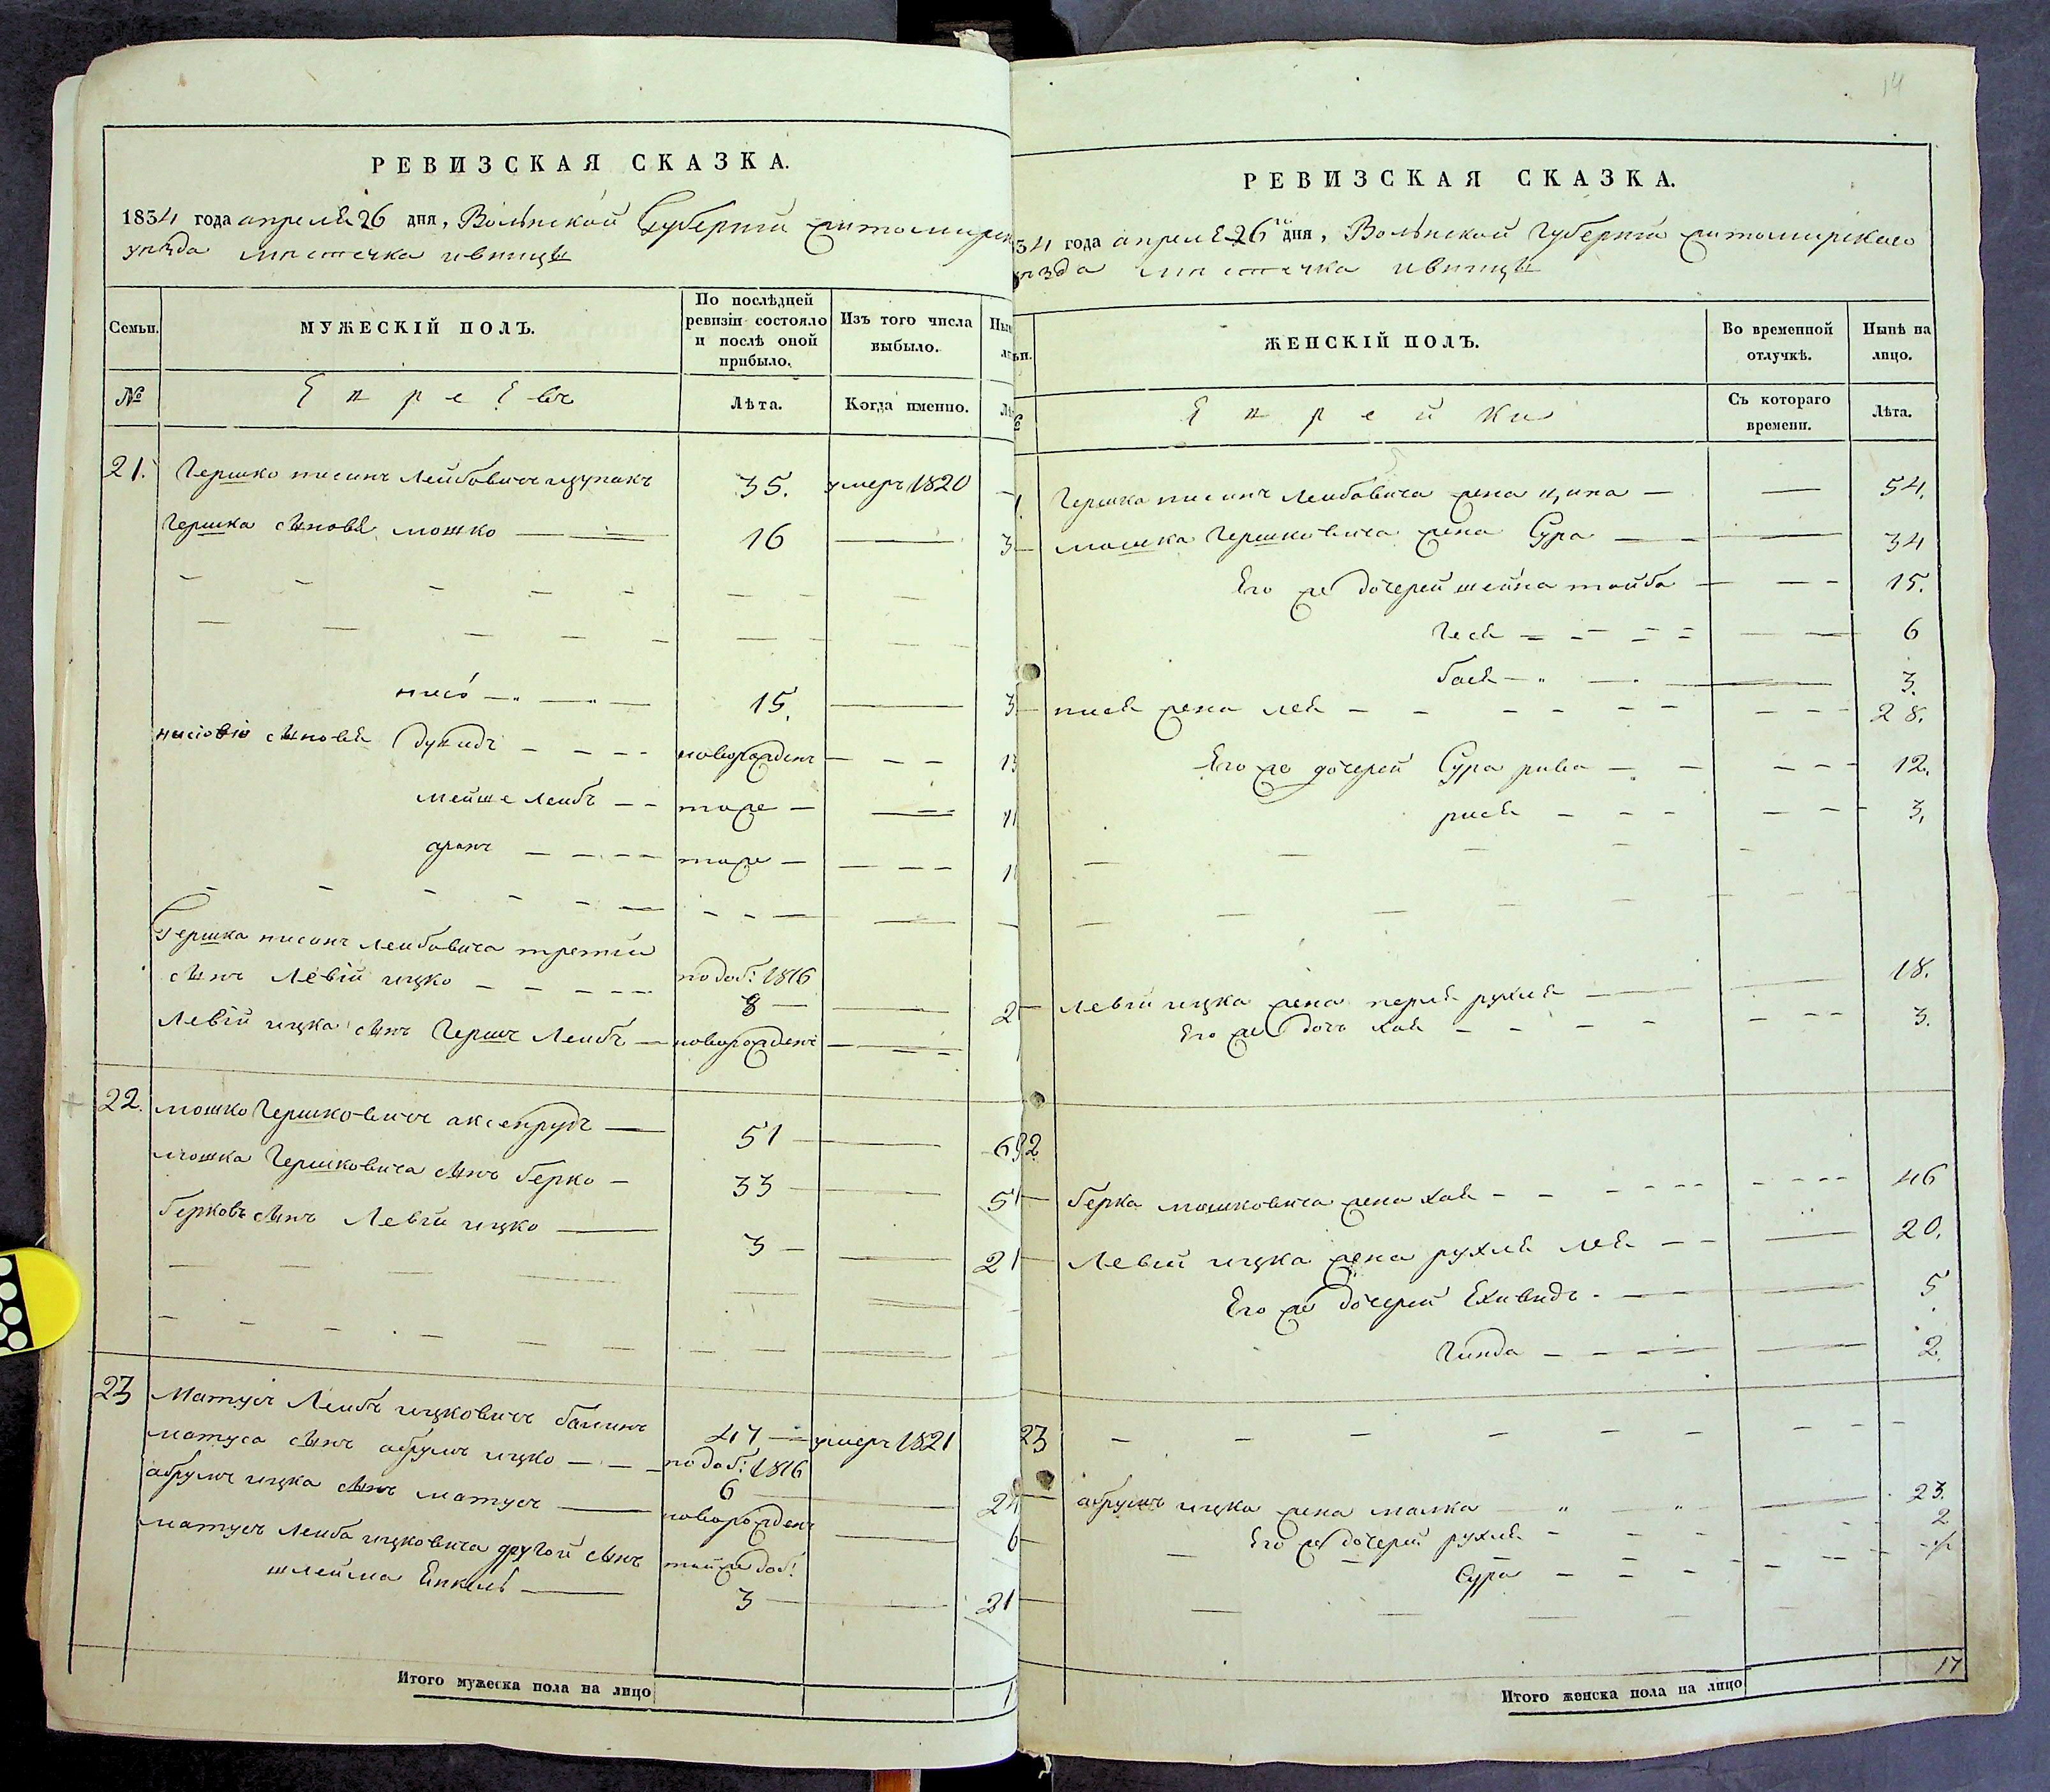 РЕВИЗСКАЯ СКАЗКА.
1834 года апреля 26 дня, Волынской Губернии житомирск
уезда местечка ивницы
Семьи.
МУЖЕСКІЙ ПОЛЪ.
По послѣдней
ревизіи состояло
и послѣ оной
прибыло.
Изъ того числа
выбыло.
№
Евреевъ
Лѣта.
Когда именно.
21. Гершко нисинъ Лейбовичъ 35. умеръ 1820
Гершка сыновья мошко 16 3
нисо 15. 3
нисовы сыновья новорожденъ 13
мейше Лейбъ тоже 11
аронъ тоже 1
Гершка нисинъ Лейбовича третій
сынъ Левій ицко по доб: 1816
8 2
Левій ицка сынъ Гершъ Лейбъ новорожденъ
22. мошко Гершковичъ аксенрудъ 51 6
мошка Гершковича сынъ берко 33 51
берковъ сынъ Левій ицко 3 21
23 Матусъ Лейбъ ицковичъ 47 умеръ 1821
матуса сынъ абрумъ ицко по доб: 1816
6 24
абрумъ ицка сынъ матусъ новорожденъ 6
матусъ Лейба ицковича другой сынъ той же доб:
шлейма Янкель 3 21
Итого мужеска пола на лицо
14
РЕВИЗСКАЯ СКАЗКА.
34 года апреля 26го дня, Волынской Губерніи житомирскаго
уезда местечка ивницы
ЖЕНСКІЙ ПОЛЪ.
Во временной
отлучкѣ.
Нынѣ на
лицо.
Еврейки
Съ котораго
времени.
Лѣта.
Гершка нисинъ Лейбовича жена ципа 54.
мошка Гершковича жена Сура 34
Его же дочерей шейна тойба 15.
Геся 6
бася 3.
нися жена лея 28.
Его же дочерей Сура рива 12.
рися 3.
Левій ицка жена перля рухля 18.
Его же дочь хая 3.
22
берка мошковича жена хая 46
Левій ицка жена рухля лея 20.
Его же дочерей Ехивидъ 5
Гинда 2.
23
абрумъ ицка жена малка 23.
Его же дочерей рухля 2
Сура
17
Итого женска пола на лицо